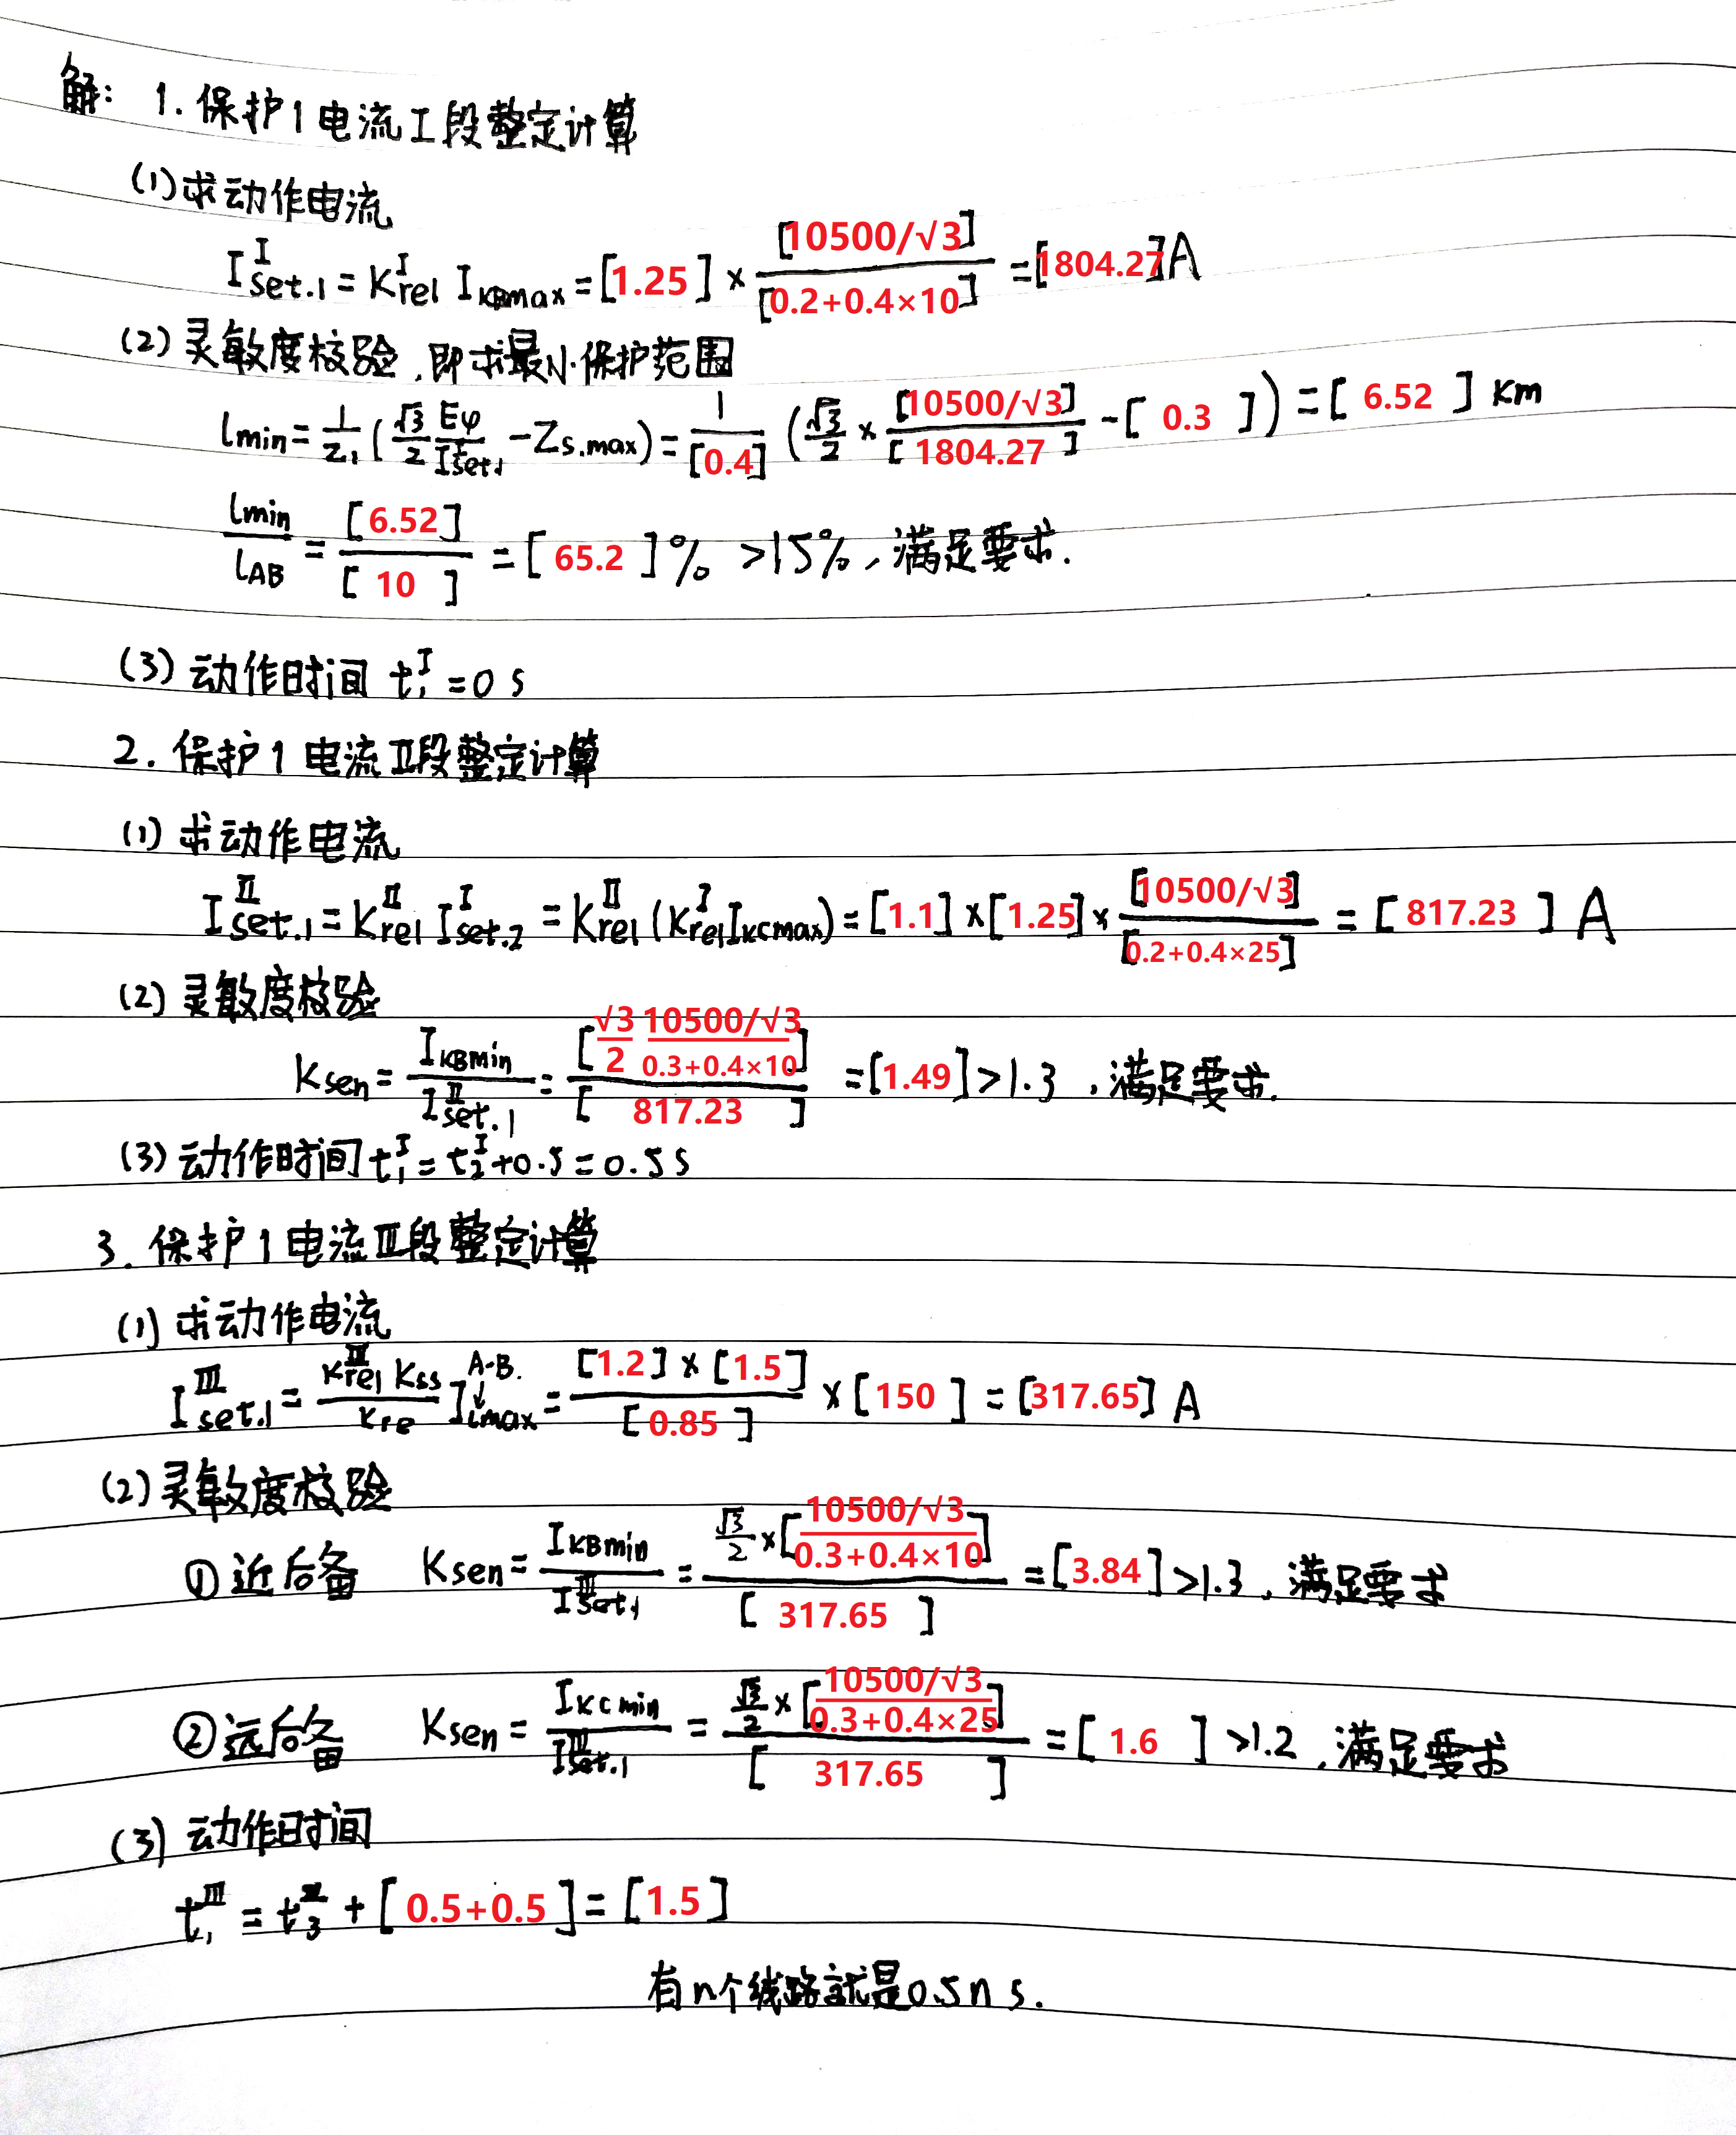 解: 1. 保护1电流I段整定计算
(1) 求动作电流
I^I_set.1 = K^I_rel I_KBmax = [1.25] × [10500/√3] / [0.2+0.4×10] = [1804.27] A
(2) 灵敏度校验,即求最小保护范围
lmin = 1/Z₁ (√3/2 Eφ/I^I_set.1 - Zs.max) = 1/[0.4] (√3/2 × [10500/√3]/[1804.27] - [0.3]) = [6.52] km
lmin/lAB = [6.52]/[10] = [65.2]% >15%, 满足要求.
(3) 动作时间 t^I_1 = 0 s
2. 保护1 电流II段整定计算
(1) 求动作电流
I^II_set.1 = K^II_rel I^I_set.2 = K^II_rel (K^I_rel I_KCmax) = [1.1] × [1.25] × [10500/√3] / [0.2+0.4×25] = [817.23] A
(2) 灵敏度校验
Ksen = I_KBmin / I^II_set.1 = [√3/2 10500/√3 / 0.3+0.4×10] / [817.23] = [1.49] >1.3, 满足要求.
(3) 动作时间 t^I_1 = t^I_2 + 0.5 = 0.5 s
3. 保护1电流III段整定计算
(1) 求动作电流
I^III_set.1 = K^III_rel Kss / Kre I_Lmax A-B. ↓ = [1.2] × [1.5] / [0.85] × [150] = [317.65] A
(2) 灵敏度校验
① 近后备 Ksen = I_KBmin / I^III_set.1 = √3/2 × [10500/√3 / 0.3+0.4×10] / [317.65] = [3.84] >1.3, 满足要求
② 远后备 Ksen = I_KCmin / I^III_set.1 = √3/2 × [10500/√3 / 0.3+0.4×25] / [317.65] = [1.6] >1.2, 满足要求
(3) 动作时间
t^III_1 = t^III_3 + [0.5+0.5] = [1.5]
有n个线路就是0.5n s.